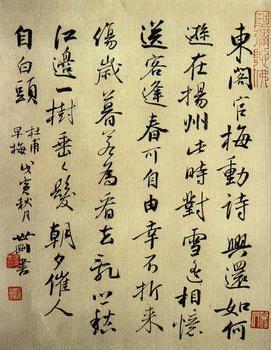 東閣官梅動詩興還如何
遜在揚州此時對雪遙相憶
送客逢春可自由幸不折來
傷歲暮若為看去亂鄉愁
江邊一樹垂々髮朝夕催人
自白頭
杜甫
早梅
戊寅秋月
書